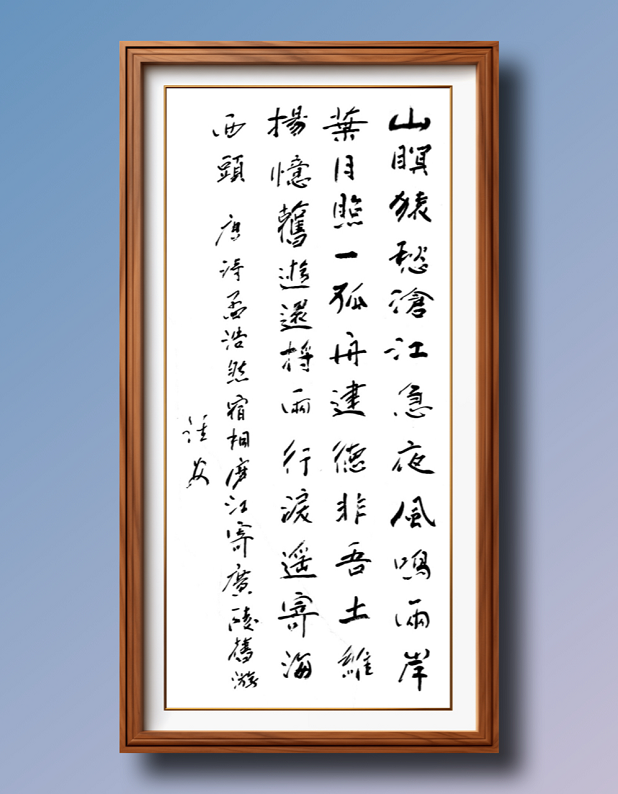 山暝猿愁滄江急夜風鳴兩岸
葉月照一孤舟建德非吾土維
揚憶舊遊還將兩行淚遙寄海
西頭 唐詩孟浩然宿桐庐江寄廣陵舊游